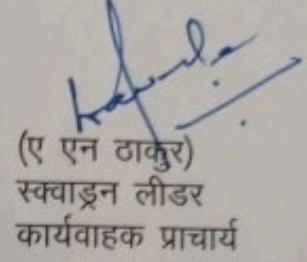 (ए एन ठाकुर)
स्क्वाड्रन लीडर
कार्यवाहक प्राचार्य